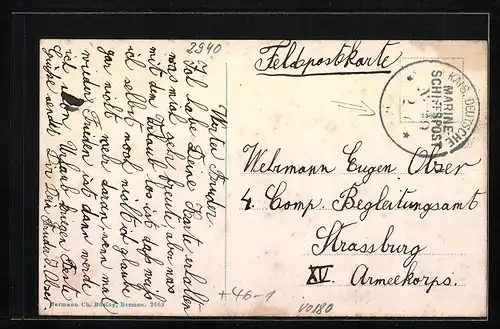 2940
Feldpostkarte
KAIS. DEUTSCHE
MARINE-
SCHIFFSPOST
Werter Bruder
Ich habe Deine Karte erhalten
was mich sehr freute, aber was
mit den Urlaub los ist das weis
ich selbst noch nicht ich glaube
gar nicht mehr daran, wenn mal
wieder Frieden ist dann werde
ich Urlaub kriegen Beste
Grüße sendet Dir Dein Bruder
Wehrmann Eugen Oser
4. Comp. Begleitungsamt
Strassburg
XV. Armeekorps.
Hermann Ch. Büsing, Bremen. 2669
+46-1
vo180